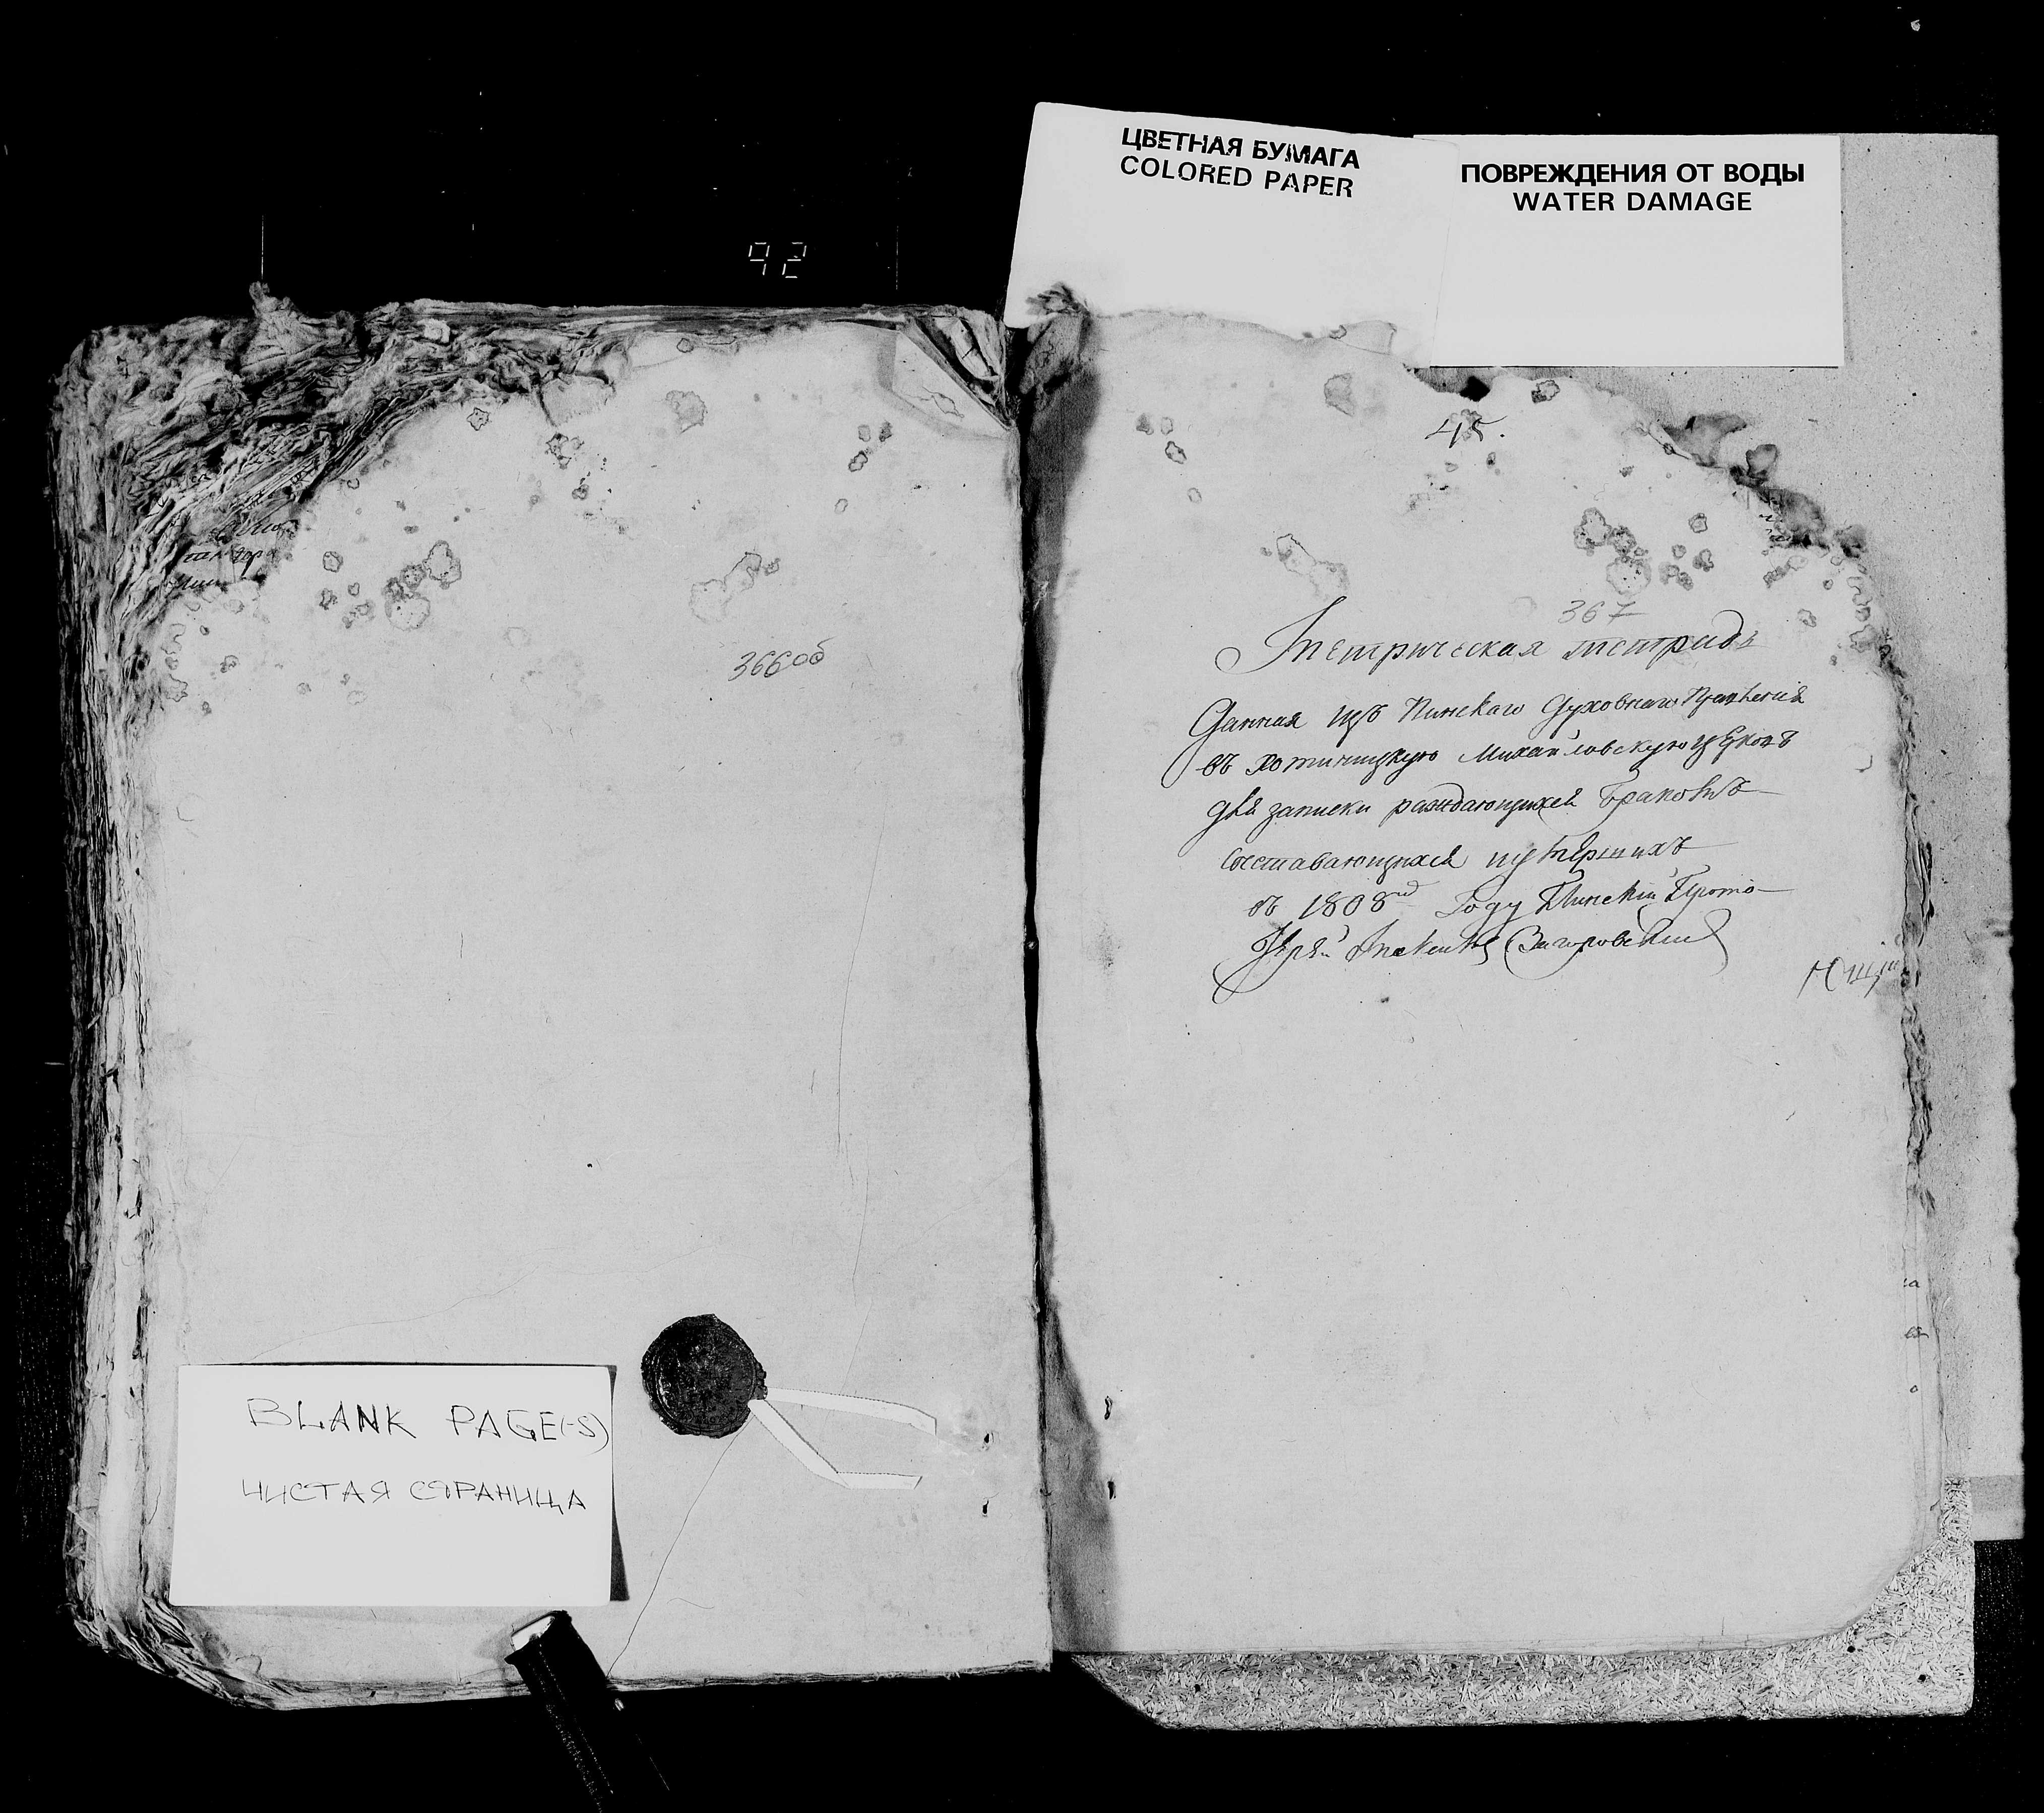 ЦВЕТНАЯ БУМАГА
COLORED PAPER
ПОВРЕЖДЕНИЯ ОТ ВОДЫ
WATER DAMAGE
92
366об
BLANK PAGE(-S)
ЧИСТАЯ СТРАНИЦА
45.
367
Метрическая тетрадь
Данная изъ Пинскаго Духовнаго Правленія
въ хотиницкую Михайловскую церковь
для записки раждающихся браковъ
сочетавающихся и умершихъ
въ 1808 году Пинскій Прото-
Іерей